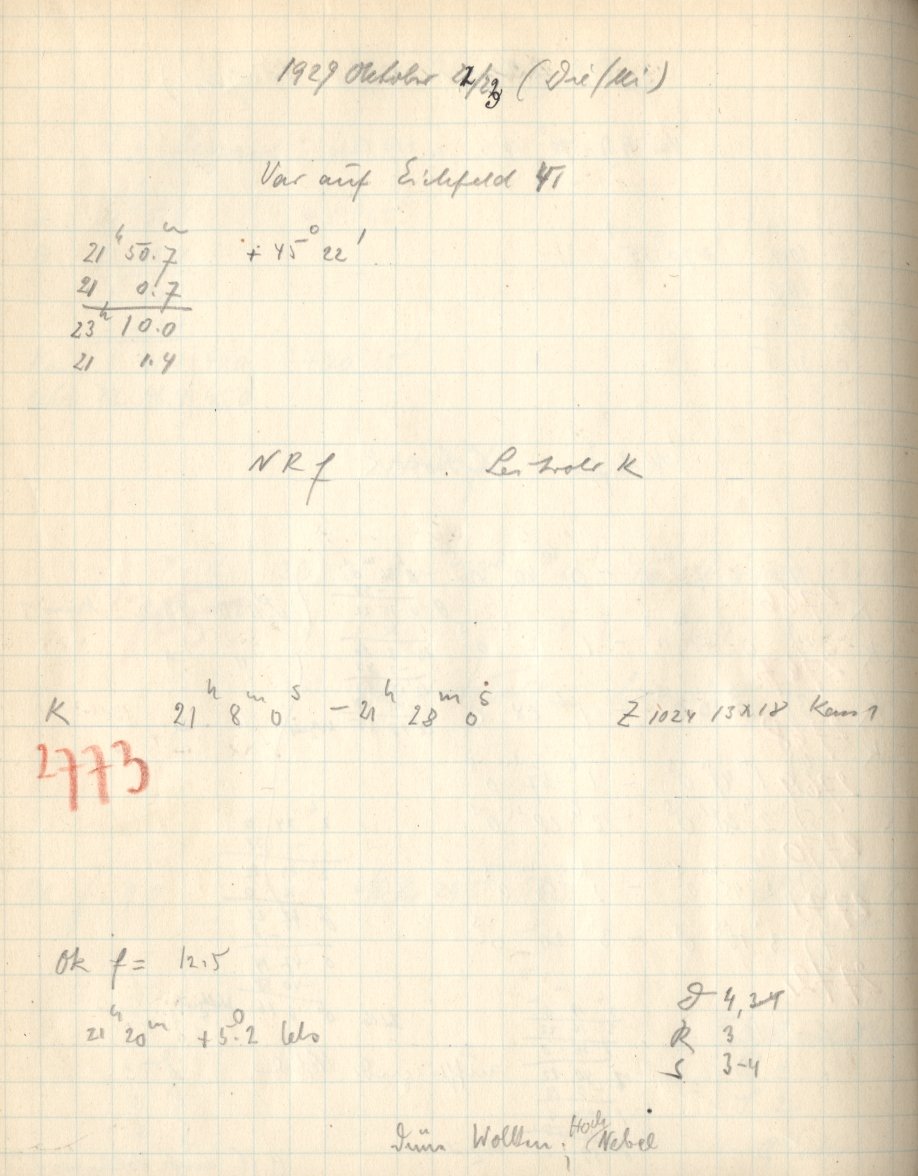 1929 Oktober 22/23 (Die/Mi)
Var auf Eichfeld 41
21ʰ 50.7ᵐ + 45° 22'
21 0.7
23ʰ 10.0
21 1.4
NRf Leitrohr K
K 21ʰ 8ᵐ 0ˢ – 21ʰ 28ᵐ 0ˢ Z 1024 13x18 Kass 1
2773
Ok f = 12.5
21ʰ 20ᵐ +5°.2
D 4,
R 3
S 3-4
Wolken, Hoch Nebel